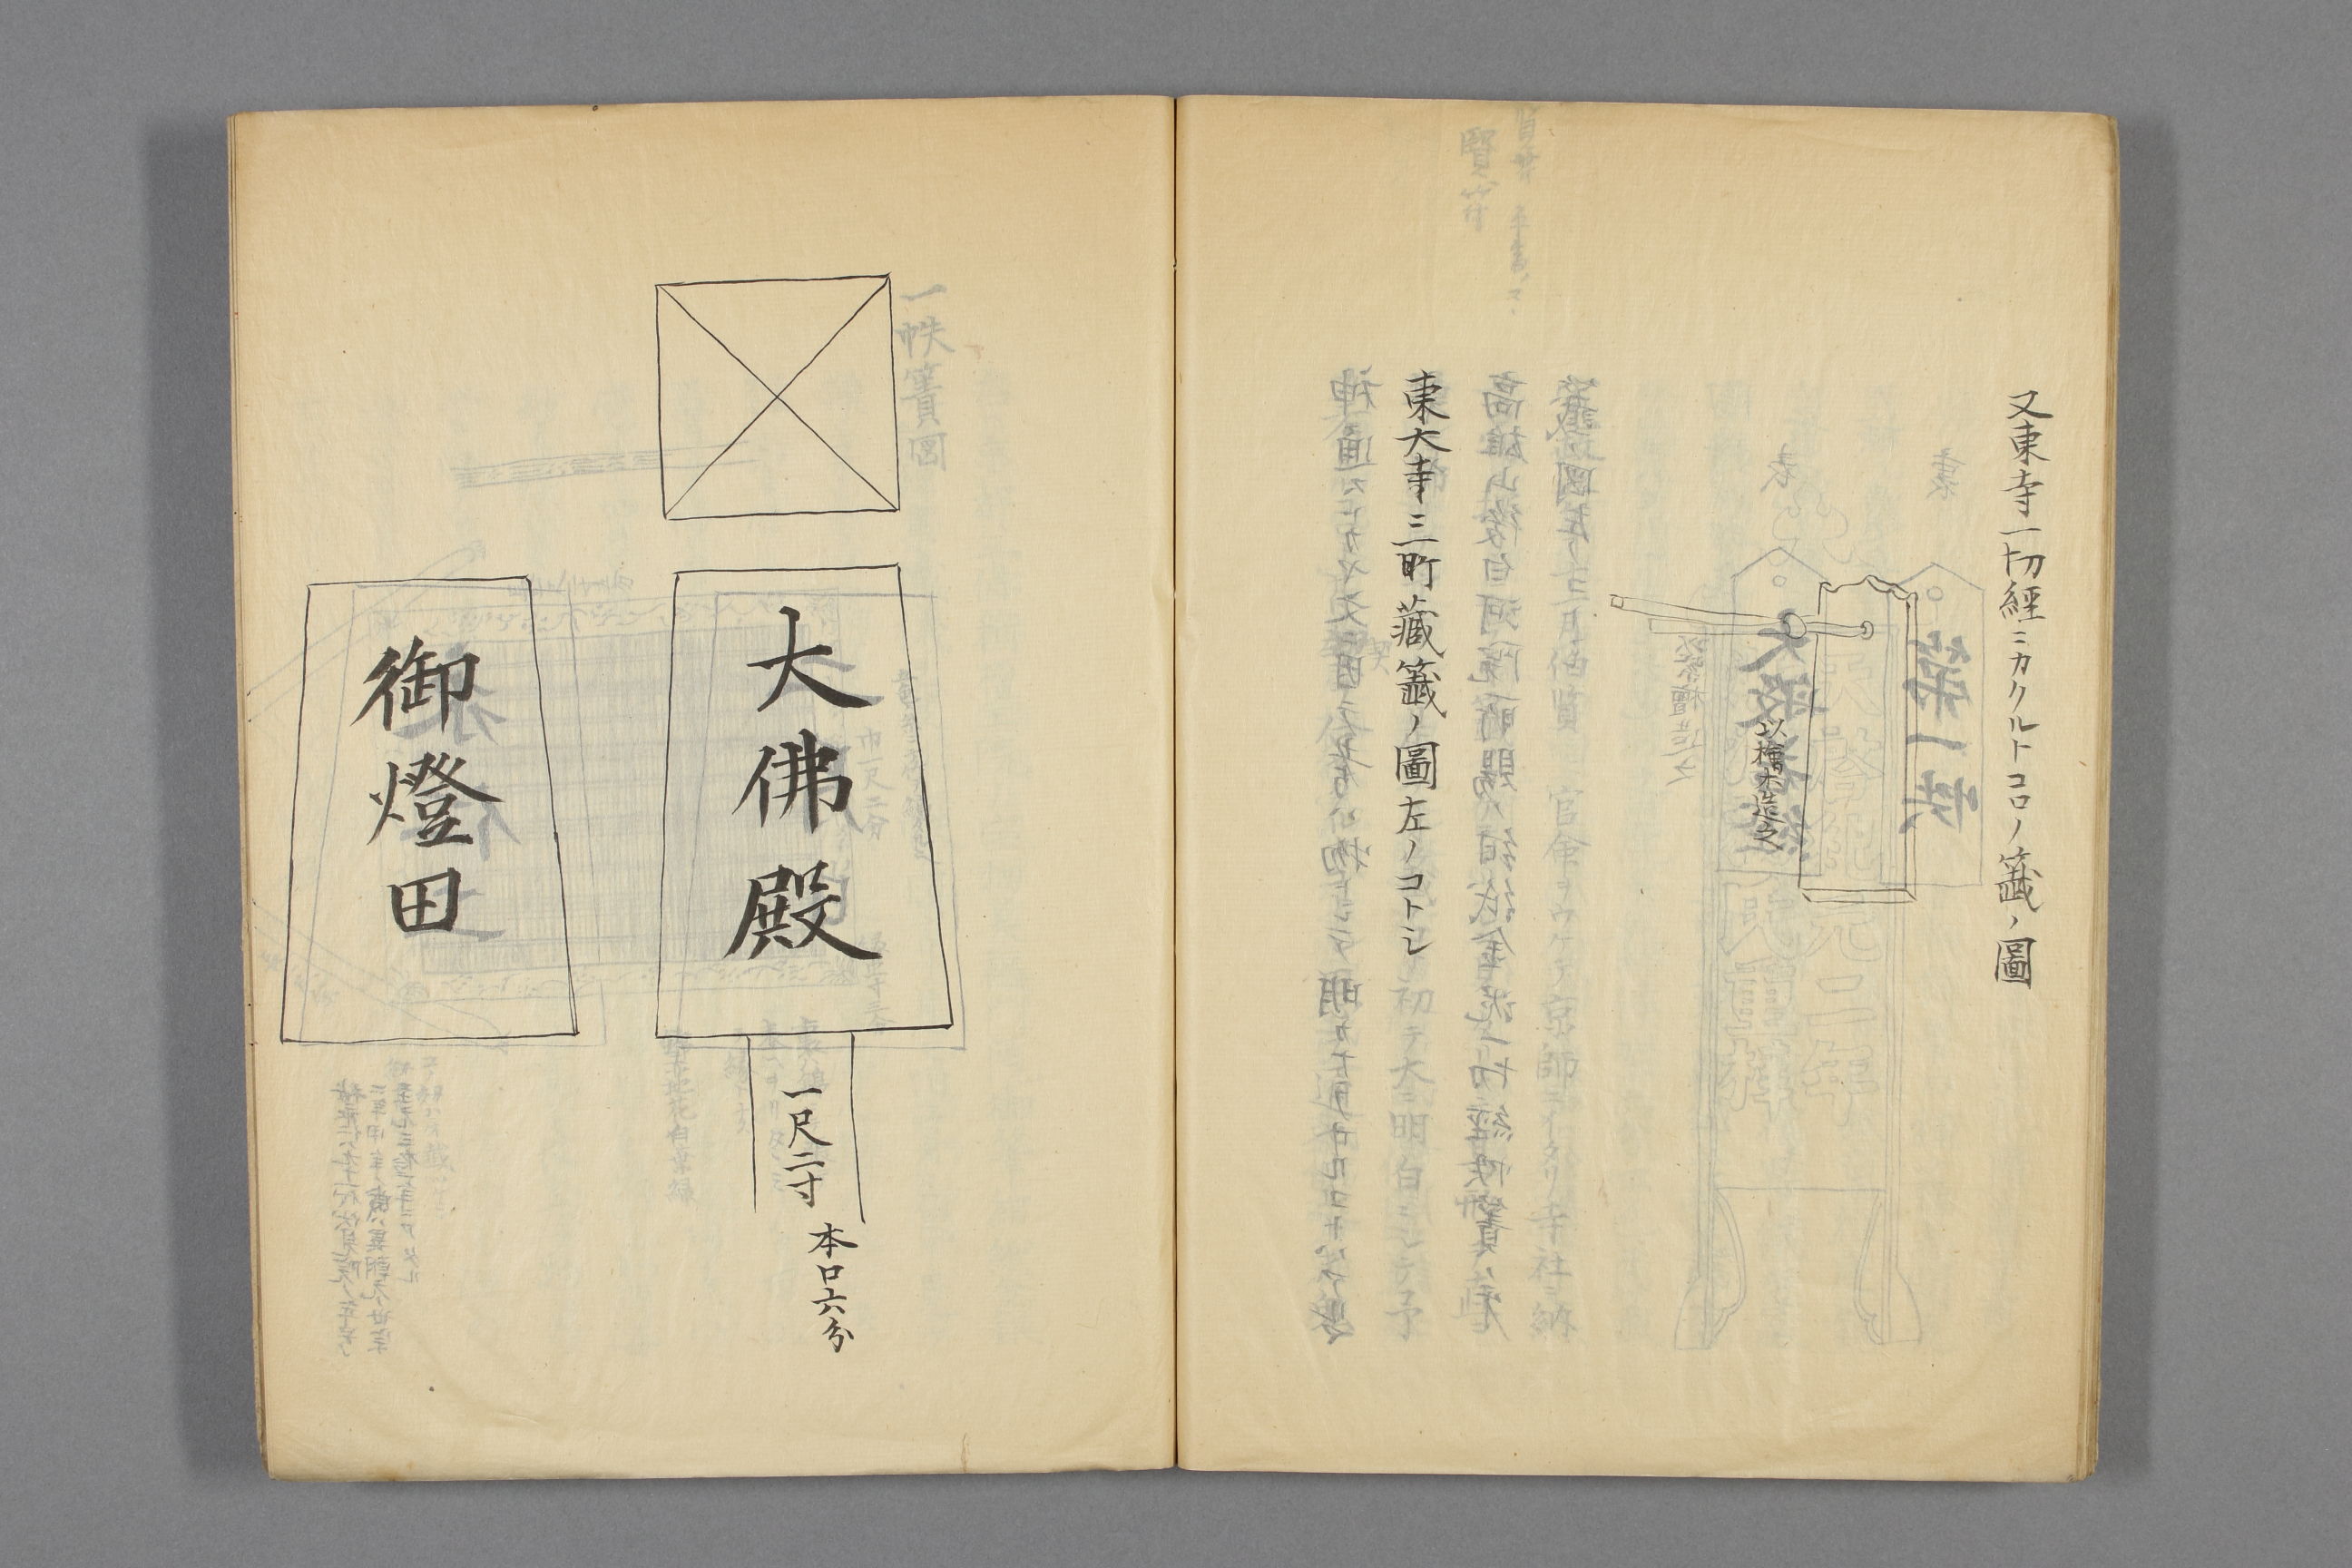 又東寺一切經ニカクルトコロノ籤ノ圖
以檜木造之
東大寺三町藏籤ノ圖左ノコトシ
大佛殿
一尺二寸
本口六分
御燈田